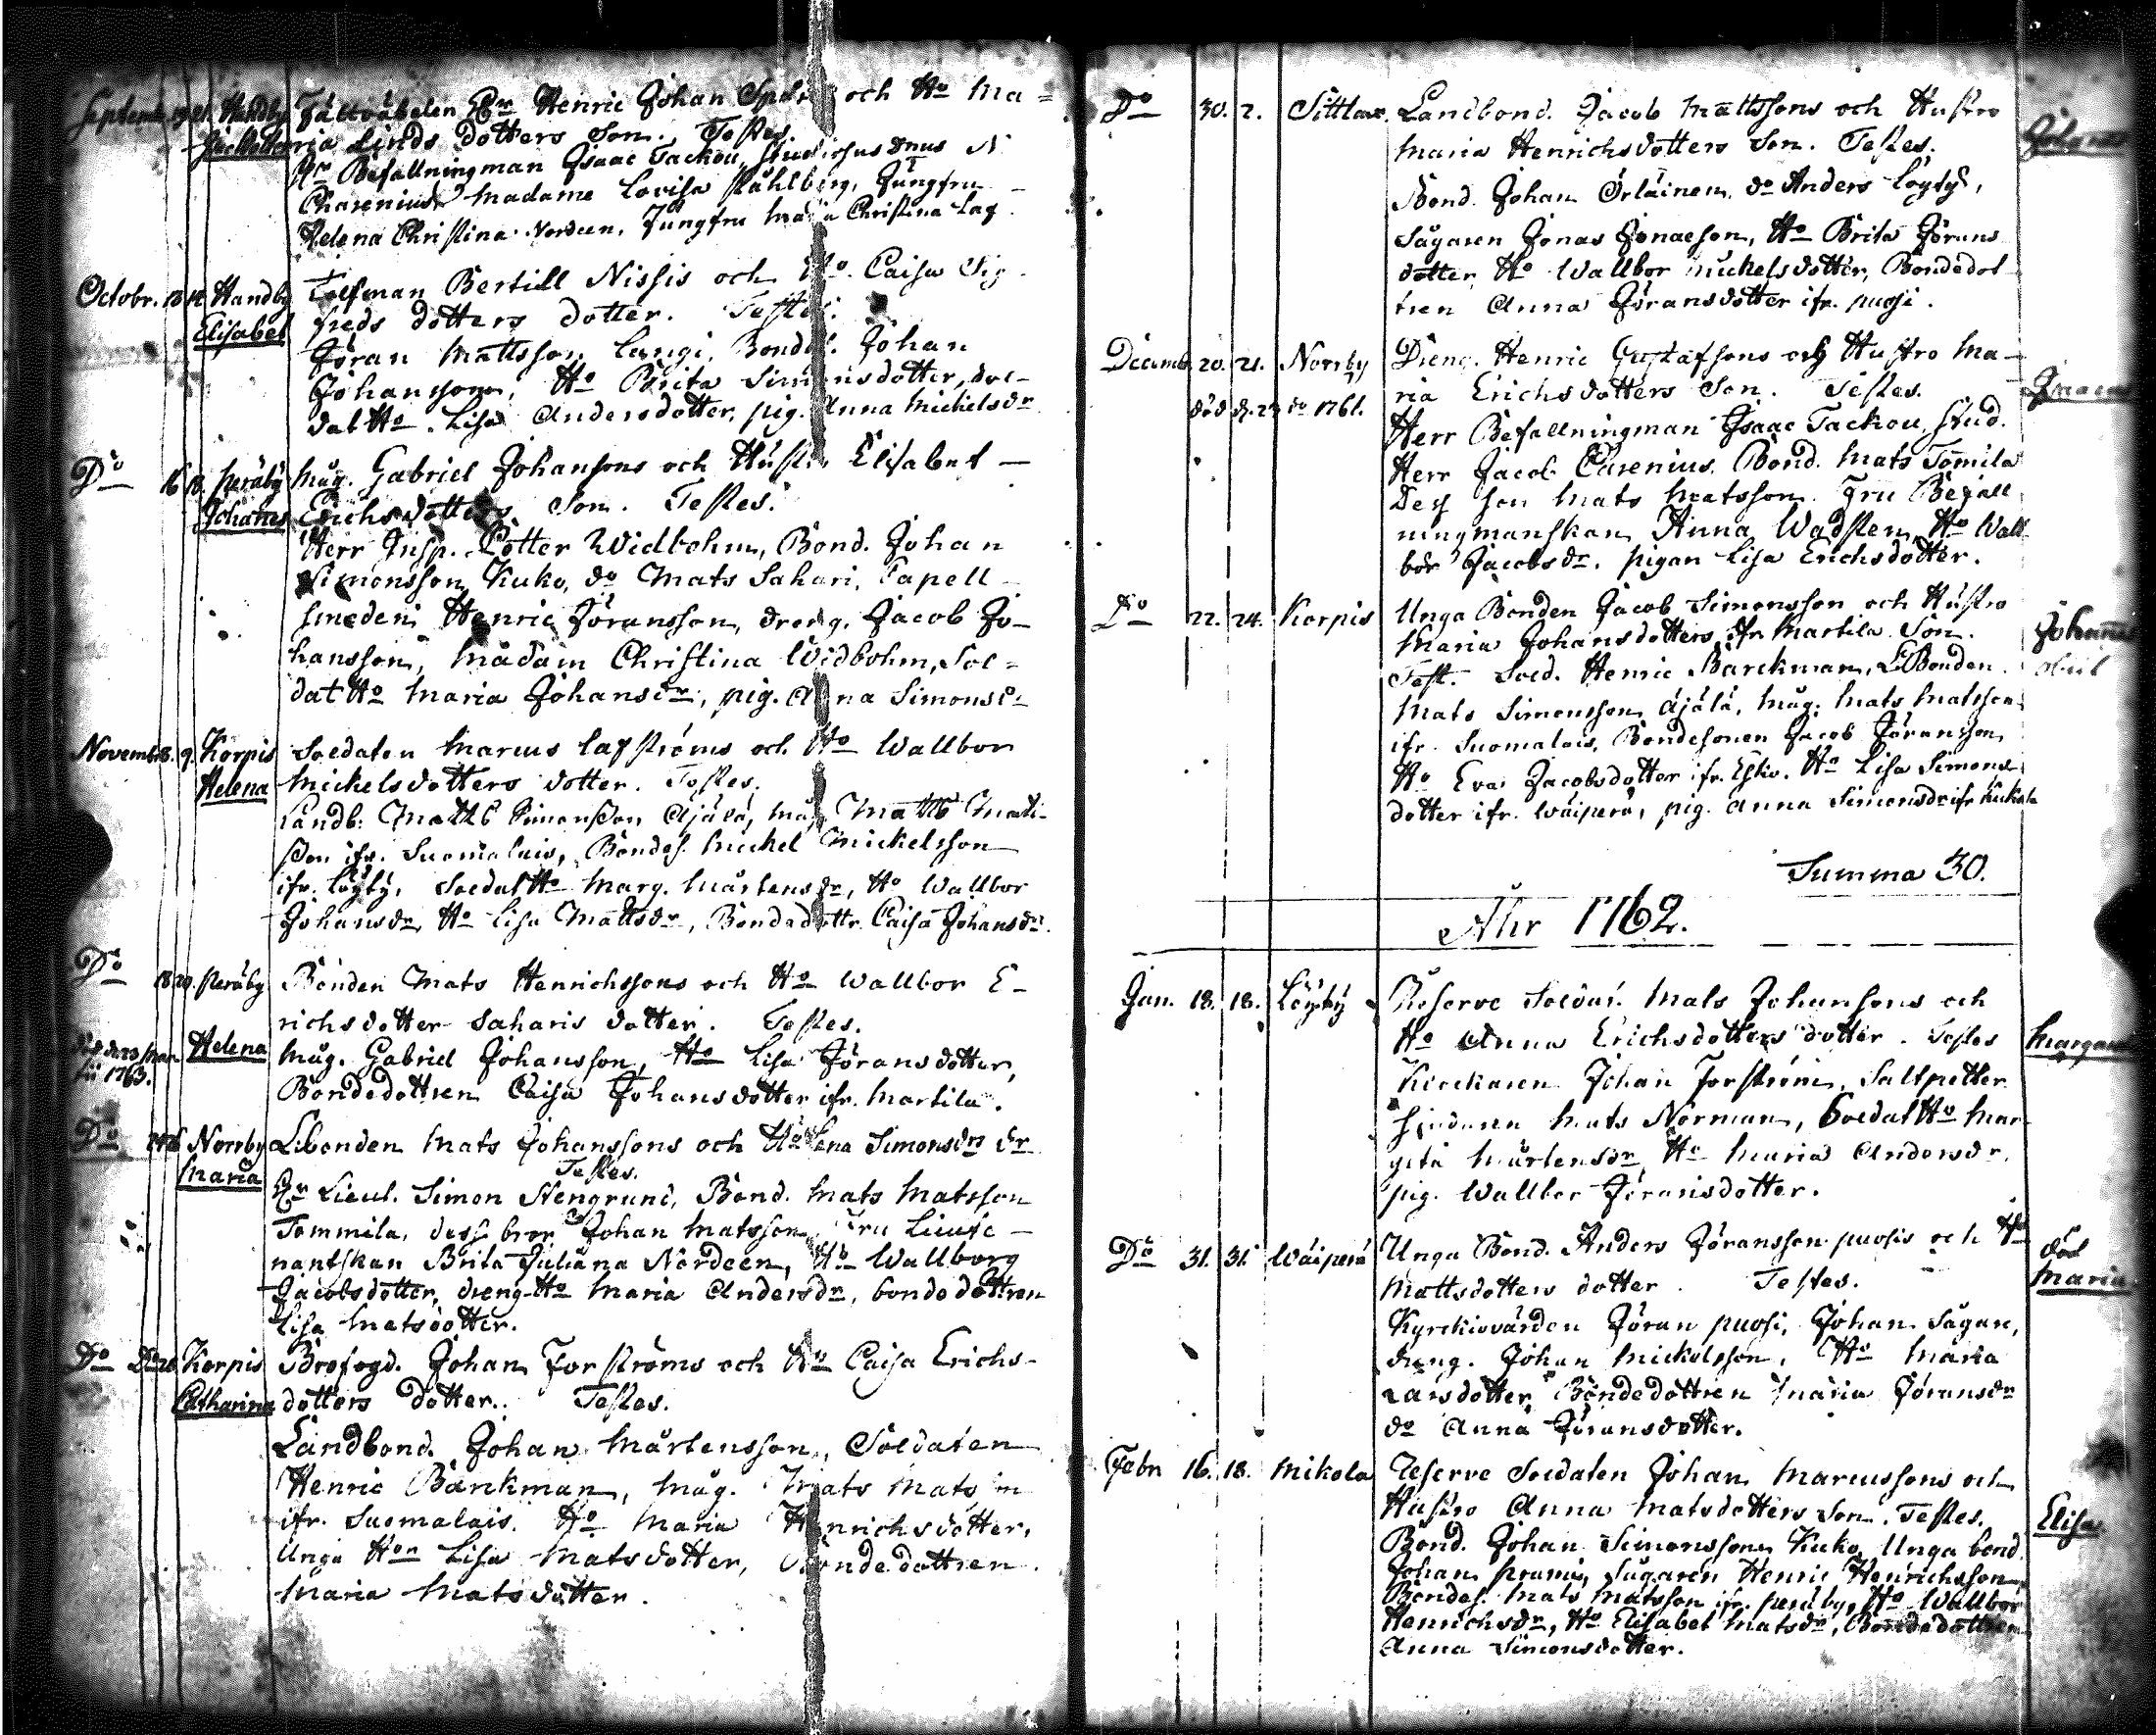 Septemb. 19. 21. Handby Fältväbelen Hr Henric Johan och Ho Ma=
ria Linds dotters Son. Testes.
Hr Befallningman Isaac Tackou, Studiosus Dnus
Charenius, Madame Lovisa Ståhlberg, Jungfru
Helena Christina Nordeen, Jungfru Maria Christina Lag
Octobr. 13 14 Handby Tolfman Bertill Nissis och Ho. Caisa Sig-
Elisabet freds dotters dotter. Testes.
Jöran Mattsson Langi, Bondes. Johan
Johansson, Ho Brita Simonsdotter, Sol-
dat Ho. Lisa Andersdotter, pig. Anna Michelsdr
Do 16 18. Peräby Måg. Gabriel Johansons och Hustru Elisabet
Johanes Erichsdotters Son. Testes.
Herr Insp. Petter Widbohm, Bond. Johan
Simonsson Kuko, do Mats Sahari, Capell-
smeden Henric Jöransson, dreng. Jacob Jo-
hansson, Madam Christina Widbohm, Sol=
dat Ho Maria Johansdr, pig. Anna Simonsd
Novemb. 8. 9. Korpis Soldaten Marcus Lagströms och Ho Wallbor
Helena Mickelsdotters dotter. Testes.
Landb. Matts Simonsson Äjälä, Måg Matts Matt-
son ifr. Suomalais, Bondes. Michel Mickelsson
ifr. Löyty, Soldat Ho Marg. Mårtensdr, Ho Wallbor
Johansdr, Ho Lisa Mattsdr, Bondedottr. Caisa Johansdr.
Do 18 20. Peräby Bonden Mats Henrichssons och Ho Wallbor E-
richsdotter Saharis dotter. Testes.
1763. Helena Måg. Gabriel Johansson, Ho Lisa Jöransdotter,
Bondedottren Caisa Johansdotter ifr. Martila.
Do Norrby Lbonden Mats Johanssons och Ho Lena Simonsdrs dr
Maria Testes.
Hr Lieut. Simon Stengrund, Bond. Mats Matsson
Tommila, dess bror Johan Matsson, Fru Lieute-
nantskan Brita Juliana Nordeen, Ho Wallborg
Jacobsdotter, dreng Ho Maria Andersdr, bondedottren
Lisa Matsdotter.
Do Korpis Brofogd. Johan Forströms och Ho Caisa Erichs-
Catharina dotters dotter. Testes.
Landbond. Johan Mårtensson, Soldaten
Henric Bärckman, Måg. Mats Mats
ifr. Suomalais. Ho Maria Henrichsdotter,
Unga Hon Lisa Matsdotter, Bondedottren
Maria Matsdotter.
Do 30. 2. Sittlax. Landbond. Jacob Mattssons och Hustro
Johannes
Maria Henrichsdotters Son. Testes.
Bond. Johan Örläinen, do Anders Löyty,
Sågaren Jonas Jonaeson, Ho Brita Jörans
dotter, Ho Wallbor Mickelsdotter, Bondedot
tren Anna Jöransdotter ifr. Puosi.
Decemb. 20. 21. Norrby Dreng. Henric Gustafsons och Hustro Ma-
död d. 29 do 1761. ria Erichsdotters Son. Testes. Isaac
Herr Befallningman Isaac Tackou, Stud.
Herr Jacob Carenius, Bond. Mats Tomila
Dess Son Mats Matsson. Fru Befall
ningmanskan Anna Wadsten, Ho Wall
bor Jacobsdr. pigan Lisa Erichsdotter.
Do 22. 24. Korpis Unga Bonden Jacob Simonsson och Hustro Johannes
Maria Johansdotters ifr Martila Son.
Test. Sold. Henric Bärckman, LBonden
Mats Simonsson Äjälä, Måg. Mats Matsson
ifr. Suomalais, Bondesonen Jacob Jöransson,
Ho Eva Jacobsdotter ifr. Esko. Ho Lisa Simons
dotter ifr. Wäiperä, pig. Anna Simonsdr ifr.
Summa 30.
Åhr 1762.
Jan. 18. 18. Löyty Reserve Soldat. Mats Johansons och
Ho Anna Erichsdotters dotter. Testes Margare
Kyrckaren Johan Forström, Saltpetter
Sjudaren Mats Norman, Soldat Ho Mar
geta Mårtensdr, Ho Maria Andersdr,
pig. Wallbor Jöransdotter.
Do 31. 31. Wäiperä Unga Bond. Anders Jöransson Puosis och Ho död
Mattsdotters dotter. Testes. Maria
Kyrckiovärden Jöran Puosi, Johan Sågare,
dreng. Johan Mickelsson, Ho Maria
Larsdotter, Bondedottren Maria Jöransdr
do Anna Jöransdotter.
Febr 16. 18. Mikola Reserve Soldaten Johan Marcussons och
Hustro Anna Matsdotters Son. Testes. Elisa
Bond. Johan Simonssons Kuko, Unga bond.
Johan, Sågaren Henric Henrichsson,
Bondes. Mats Matsson ifr. Peräby, Ho Wallbor
Henrichsdr, Ho Elisabet Matsdr, Bondedottren
Anna Simonsdotter.